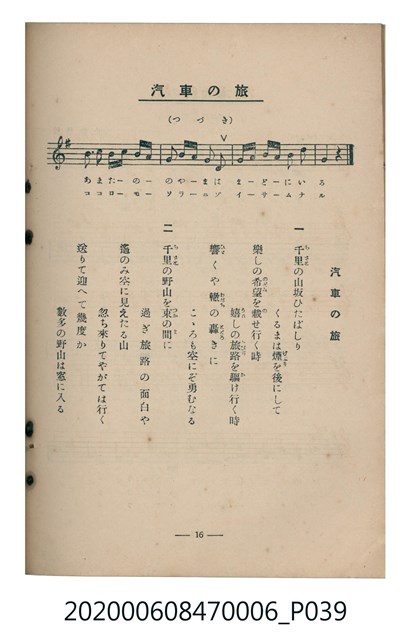 汽車の旅
(つづき)
あまたの－ のやーまは まーどーにいる
ココロー モー ソラーニゾ イーサームナル
汽車の旅
一 千里の山坂ひたばしり
くるまは煙を後にして
樂しの希望を載せ行く時
嬉しの旅路を驅け行く時
響くや轍の轟きに
こゝろも空にぞ勇むなる
二 千里の野山を束の間に
過ぎ旅路の面白や
遙のみ空に見えたる山
忽ち來りてやがては行く
送りて迎へて幾度か
數多の野山は窓に入る
— 16 —
202000608470006_P039